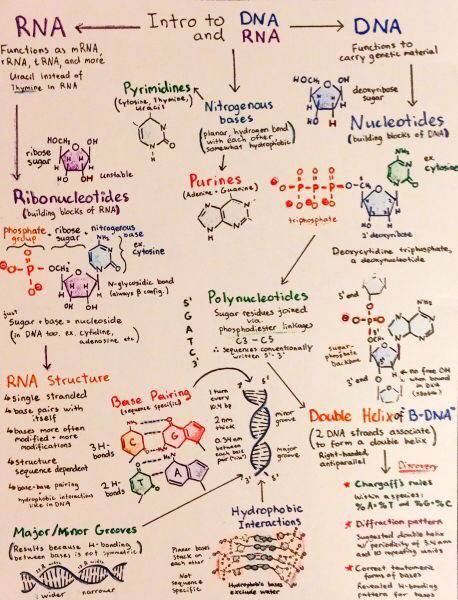 RNA
Intro to
and
DNA
RNA
DNA
Functions as mRNA,
rRNA, tRNA, and more
Uracil instead of
Thymine in RNA
Pyrimidines
(cytosine, Thymine,
uracil)
Nitrogenous
bases
(planar, hydrogen bond
with each other,
somewhat hydrophobic)
Functions to
carry genetic material
deoxyribose
sugar
Nucleotides
(building blocks of DNA)
ribose
sugar
unstable
Purines
(Adenine + Guanine)
ex.
cytosine
Ribonucleotides
(building blocks of RNA)
triphosphate
phosphate
group
+ ribose
sugar
+ nitrogenous
base
ex.
cytosine
3' deoxyribose
Deoxycytidine triphosphate,
a deoxynucleotide
N-glycosidic bond
(always β config.)
just
Sugar + base = nucleoside
(in DNA too. ex. cytidine,
adenosine etc)
5'
G
A
T
C
3'
Polynucleotides
Sugar residues joined
via
phosphodiester linkages
C3 - C5
∴ sequences conventionally
written 5'-3'
5' end
sugar-
phosphate
backbone
3' end
no free OH
when bound
in DNA
(stable)
RNA Structure
single stranded
base pairs with
itself
bases more often
modified + more
modifications
structure
sequence dependent
base-base pairing
hydrophobic interactions
like in DNA
Base Pairing
(sequence specific)
3 H-
bonds
C
G
2 H-
bonds
T
A
1 turn
every
10.4 bp
2 nm
thick
0.34 nm
between
each base
pair
5'
3'
minor
groove
major
groove
3'
5'
Double Helix of B-DNA
(2 DNA strands associate
to form a double helix)
Right-handed
antiparallel
Discovery
Chargaff's rules
Within a species:
%A=%T and %G=%C
Diffraction pattern
Suggested double helix
w/ periodicity of
and 10 repeating units
Correct tautomeric
forms of bases
Revealed H-bonding
pattern for bases
Major/Minor Grooves
(Results because H-bonding
between bases is not symmetric)
wider
narrower
Hydrophobic
Interactions
Planar bases
stack on
each other
Not
sequence
specific
Hydrophobic bases
exclude water